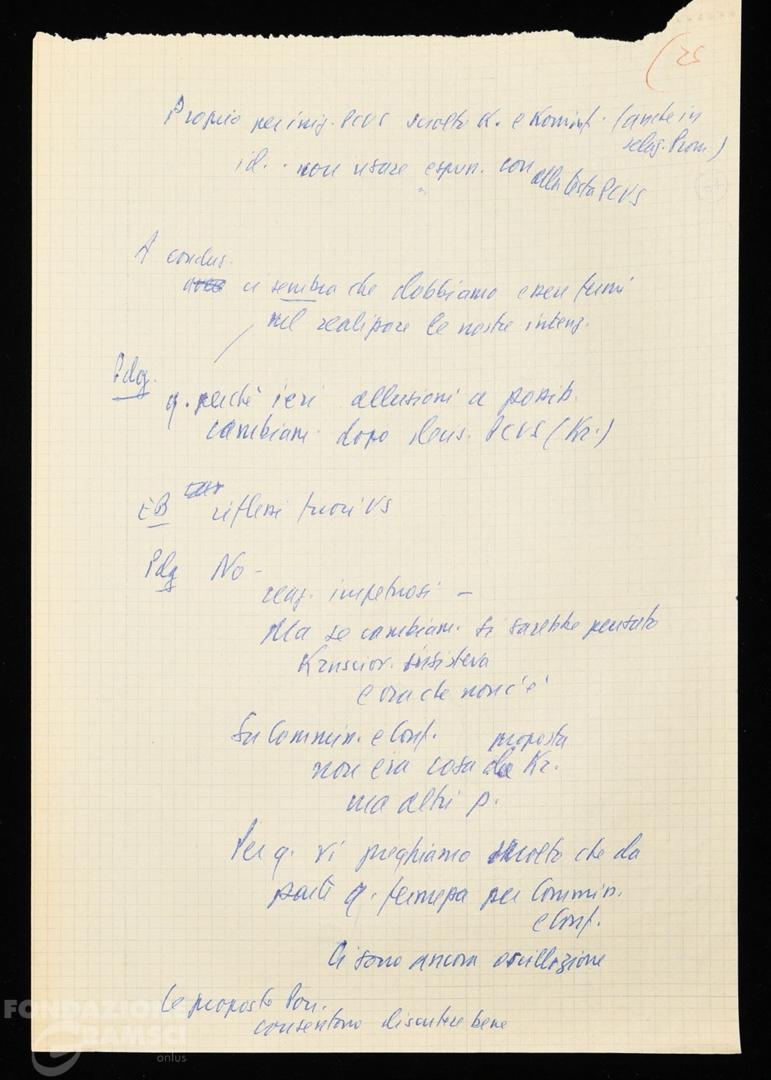 (25
Proprio per iniz. PCUS sciolto K. e Kominf. (anche in
relaz. Pon.)
id. . non usare espun. con
alla testa PCUS
A conclus.
ci sembra che dobbiamo essere fermi
nel realizzare le nostre intenz.
Pdg.
q. perché ieri allusioni a possib.
cambiam. dopo decis. PCUS (Kr.)
EB riflessi fuori US
Pdg No -
reaz. impetuosi -
Ma se cambiam. si sarebbe pensato
Krusciov. insisteva
e ora che non c'è
Su Commin. e Conf. proposta
non era cosa de Kr.
ma altri p.
Per q. vi preghiamo molto che da
parte q. fermezza per Commin.
e Conf.
Ci sono ancora oscillazione
Le proposte Pon.
consentono discutere bene
FONDAZIONE
GRAMSCI
onlus